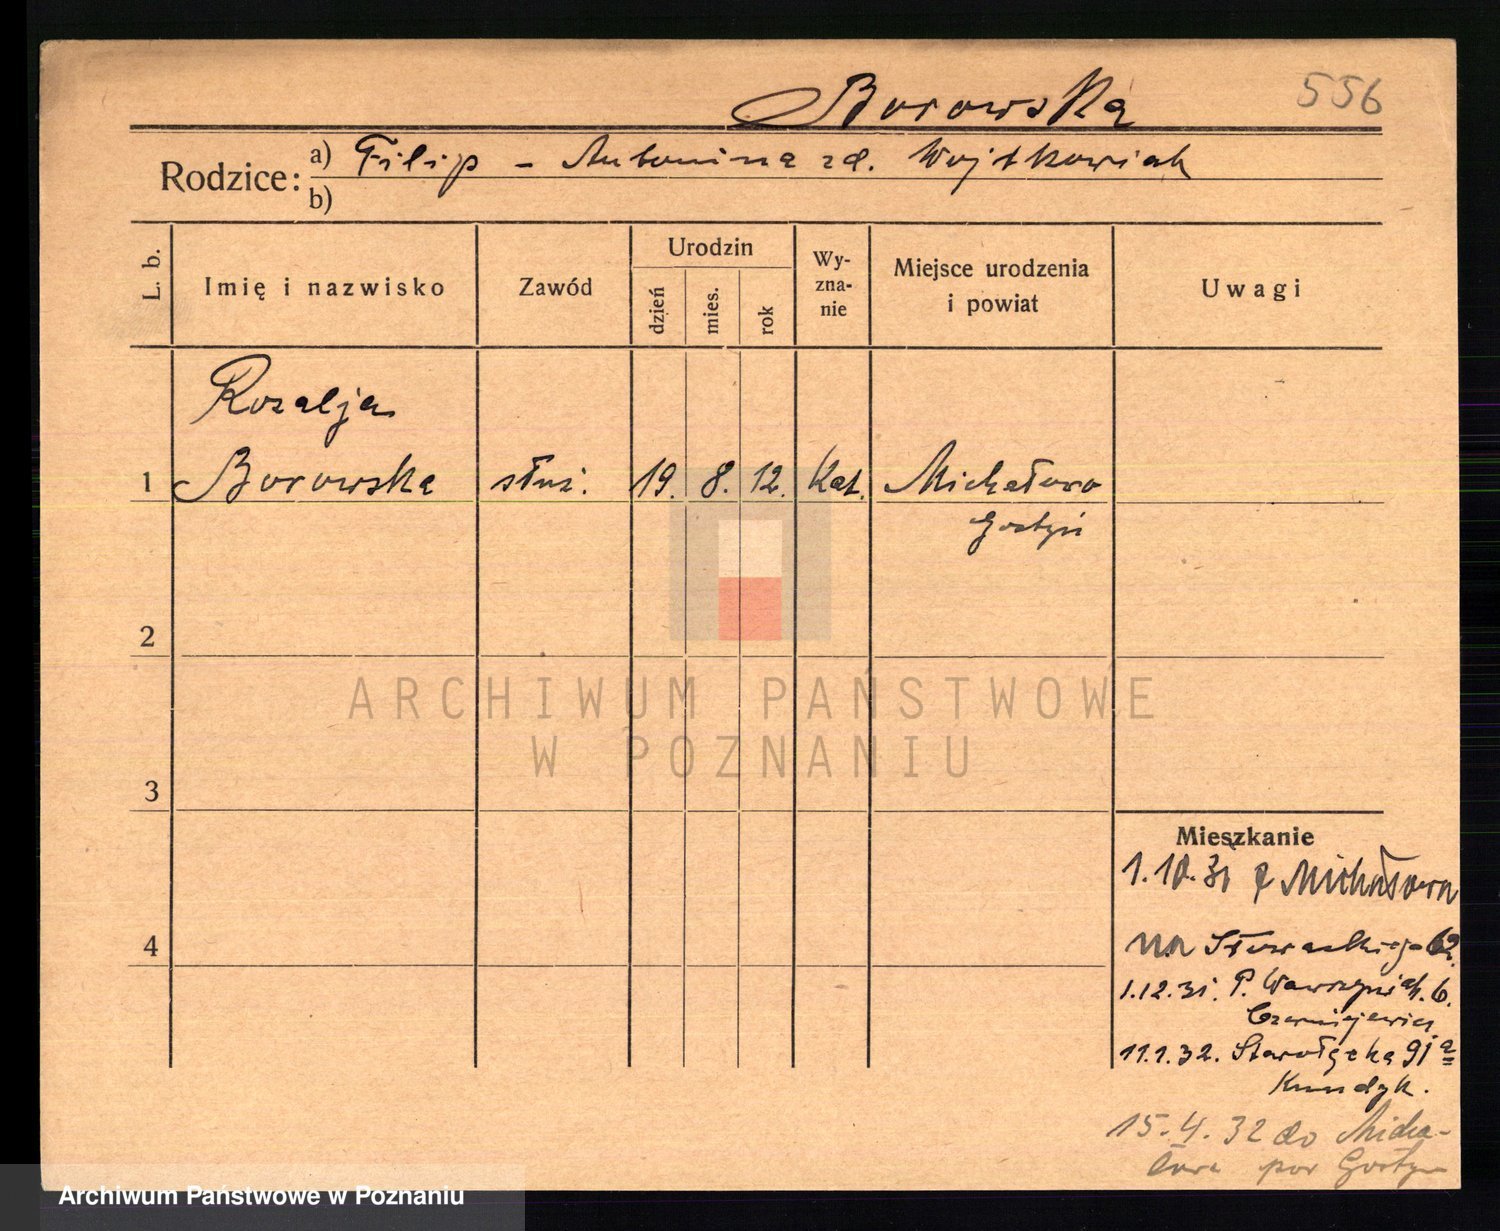 Borowska 556
Rodzice: a) Filip - Antonina zd. Wojtkowiak
b)
L. b. Imię i nazwisko Zawód Urodzin dzień mies. rok Wyznanie Miejsce urodzenia i powiat Uwagi
Rozalja
1 Borowska służ. 19. 8. 12. Kat. Michałowo
Gostyń
2
ARCHIWUM PAŃSTWOWE
W POZNANIU
3
Mieszkanie
1.10.31 z Michałowa
4 na Słowackiego
1.12.31. P. Wawrzyniak. 6.
11.1.32. Starołęcka 91 a
15.4.32 do Micha-
łowa pow Gostyn
Archiwum Państwowe w Poznaniu